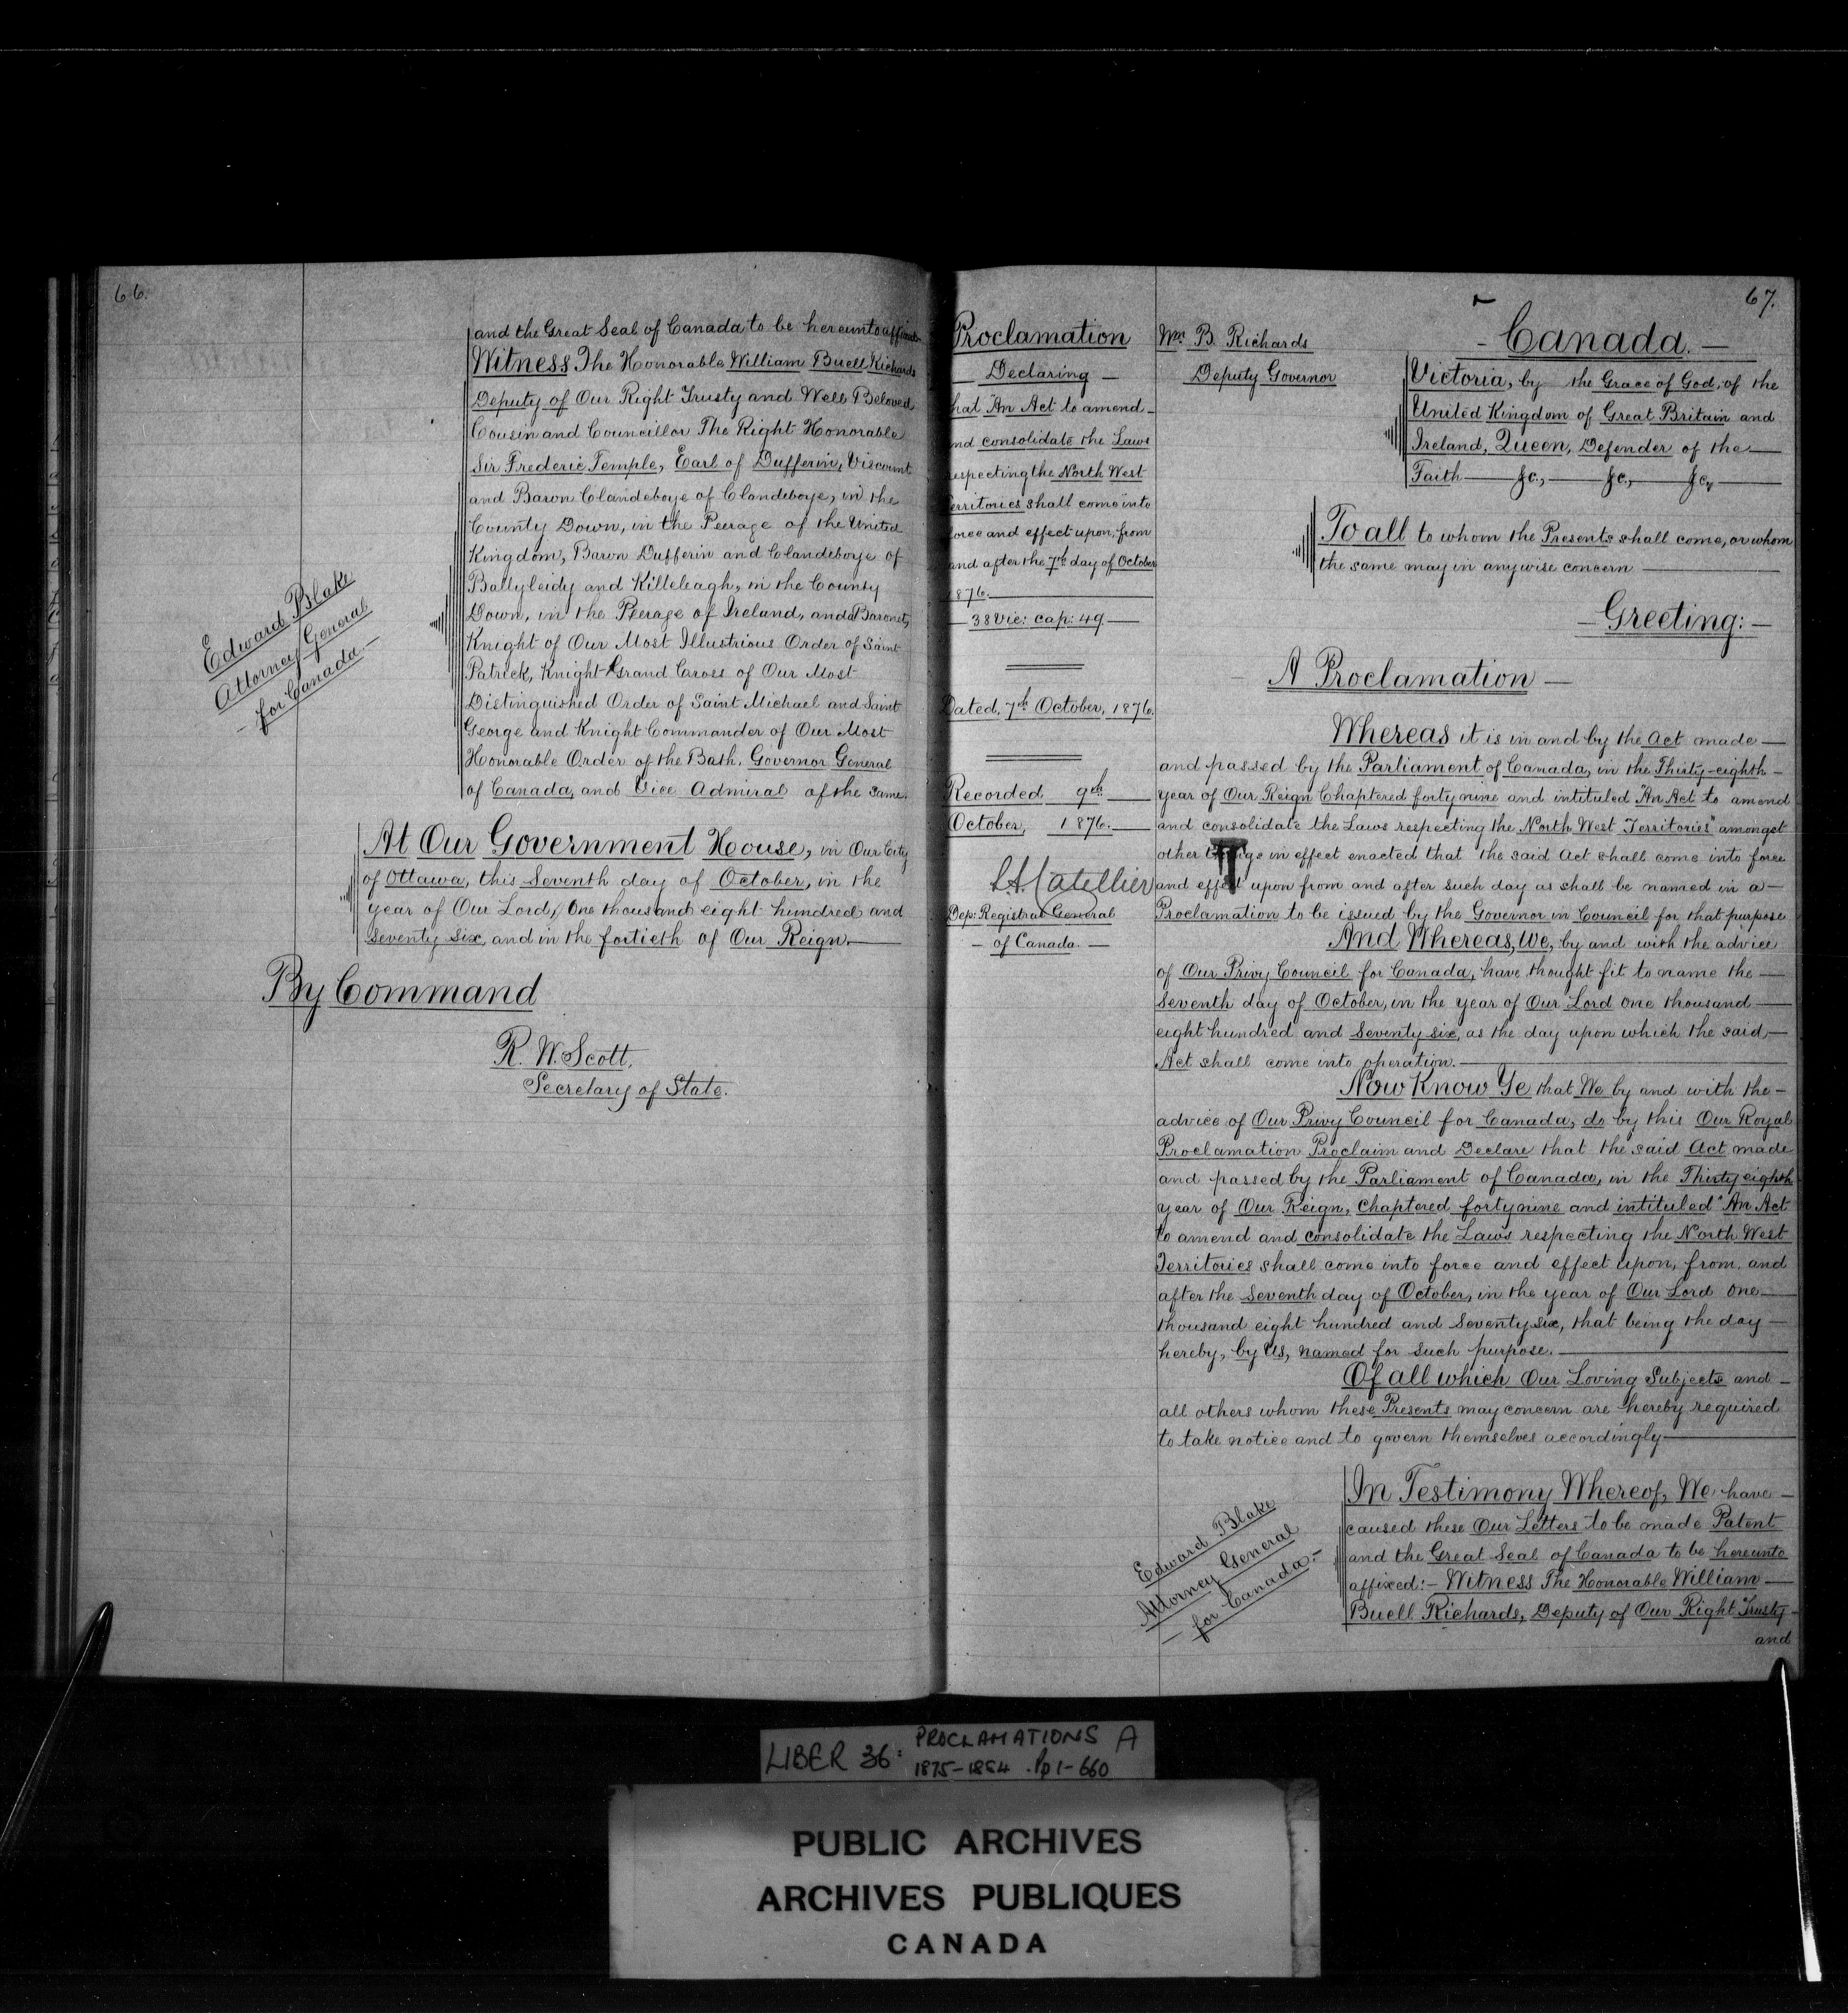 66.
and the Great Seal of Canada to be hereunto affixed
Witness The Honorable William Buell Richards
Deputy of Our Right Trusty and Well Beloved
Cousin and Councillor The Right Honorable
Sir Frederic Temple, Earl of Dufferin, Viscount
and Baron Clandeboye of Clandeboye, in the
County Down, in the Peerage of the United
Kingdom, Baron Dufferin and Clandeboye of
Ballyleidy and Killeleagh, in the County
Down, in the Peerage of Ireland, and a Baronet,
Knight of Our Most Illustrious Order of Saint
Patrick, Knight Grand Cross of Our Most
Distinguished Order of Saint Michael and Saint
George and Knight Commander of Our Most
Honorable Order of the Bath, Governor General
of Canada, and Vice Admiral of the same.
Edward Blake
Attorney General
- for Canada. -
At Our Government House, in Our City
of Ottawa, this Seventh day of October, in the
year of Our Lord, One thousand eight hundred and
Seventy Six, and in the fortieth of Our Reign.
By Command
R. W. Scott.
Secretary of State.
67.
Proclamation
Declaring
hat "An Act to amend
nd consolidate the Laws
especting the North West
erritories shall come into
orce and effect upon, from
and after the 7th day of October
1876.
38 Vic: cap: 49.
Dated, 7th October, 1876.
Recorded 9th
October, 1876.
Dep: Registrar General
- of Canada. -
Wm. B. Richards
Deputy Governor
- Canada. -
Victoria, by the Grace of God, of the
United Kingdom of Great Britain and
Ireland, Queen, Defender of the
Faith &c., &c., &c.,
To all to whom the Presents shall come, or whom
the same may in anywise concern
- Greeting: -
A Proclamation -
Whereas it is in and by the Act made
and passed by the Parliament of Canada, in the Thirty-eighth
year of Our Reign Chaptered forty nine and intituled "An Act to amend
and consolidate the Laws respecting the North West Territories" amongst
other things in effect enacted that the said Act shall come into force
and effect upon from and after such day as shall be named in a
Proclamation to be issued by the Governor in Council for that purpose
And Whereas, We, by and with the advice
of Our Privy Council for Canada, have thought fit to name the
Seventh day of October, in the year of Our Lord one thousand
eight hundred and Seventy six, as the day upon which the said
Act shall come into operation.
Now Know Ye that We by and with the
advice of Our Privy Council for Canada, do by this Our Royal
Proclamation Proclaim and Declare that the said Act made
and passed by the Parliament of Canada, in the Thirty eighth
year of Our Reign, Chaptered forty nine and intituled "An Act
to amend and consolidate the Laws respecting the North West
Territories shall come into force and effect upon, from, and
after the Seventh day of October, in the year of Our Lord one
thousand eight hundred and Seventy six, that being the day
hereby, by Us, named for such purpose.
Of all which Our Loving Subjects and
all others whom these Presents may concern are hereby required
to take notice and to govern themselves accordingly
Edward Blake
Attorney General
- for Canada. -
In Testimony Whereof, We have
caused these Our Letters to be made Patent
and the Great Seal of Canada to be hereunto
affixed: - Witness The Honorable William
Buell Richards, Deputy of Our Right Trusty
and
LIBER 36: PROCLAMATIONS A
1875-1884 . Pp 1-660
PUBLIC ARCHIVES
ARCHIVES PUBLIQUES
CANADA